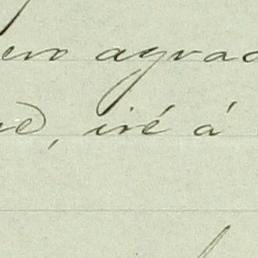 ero agrad
ue, iré á